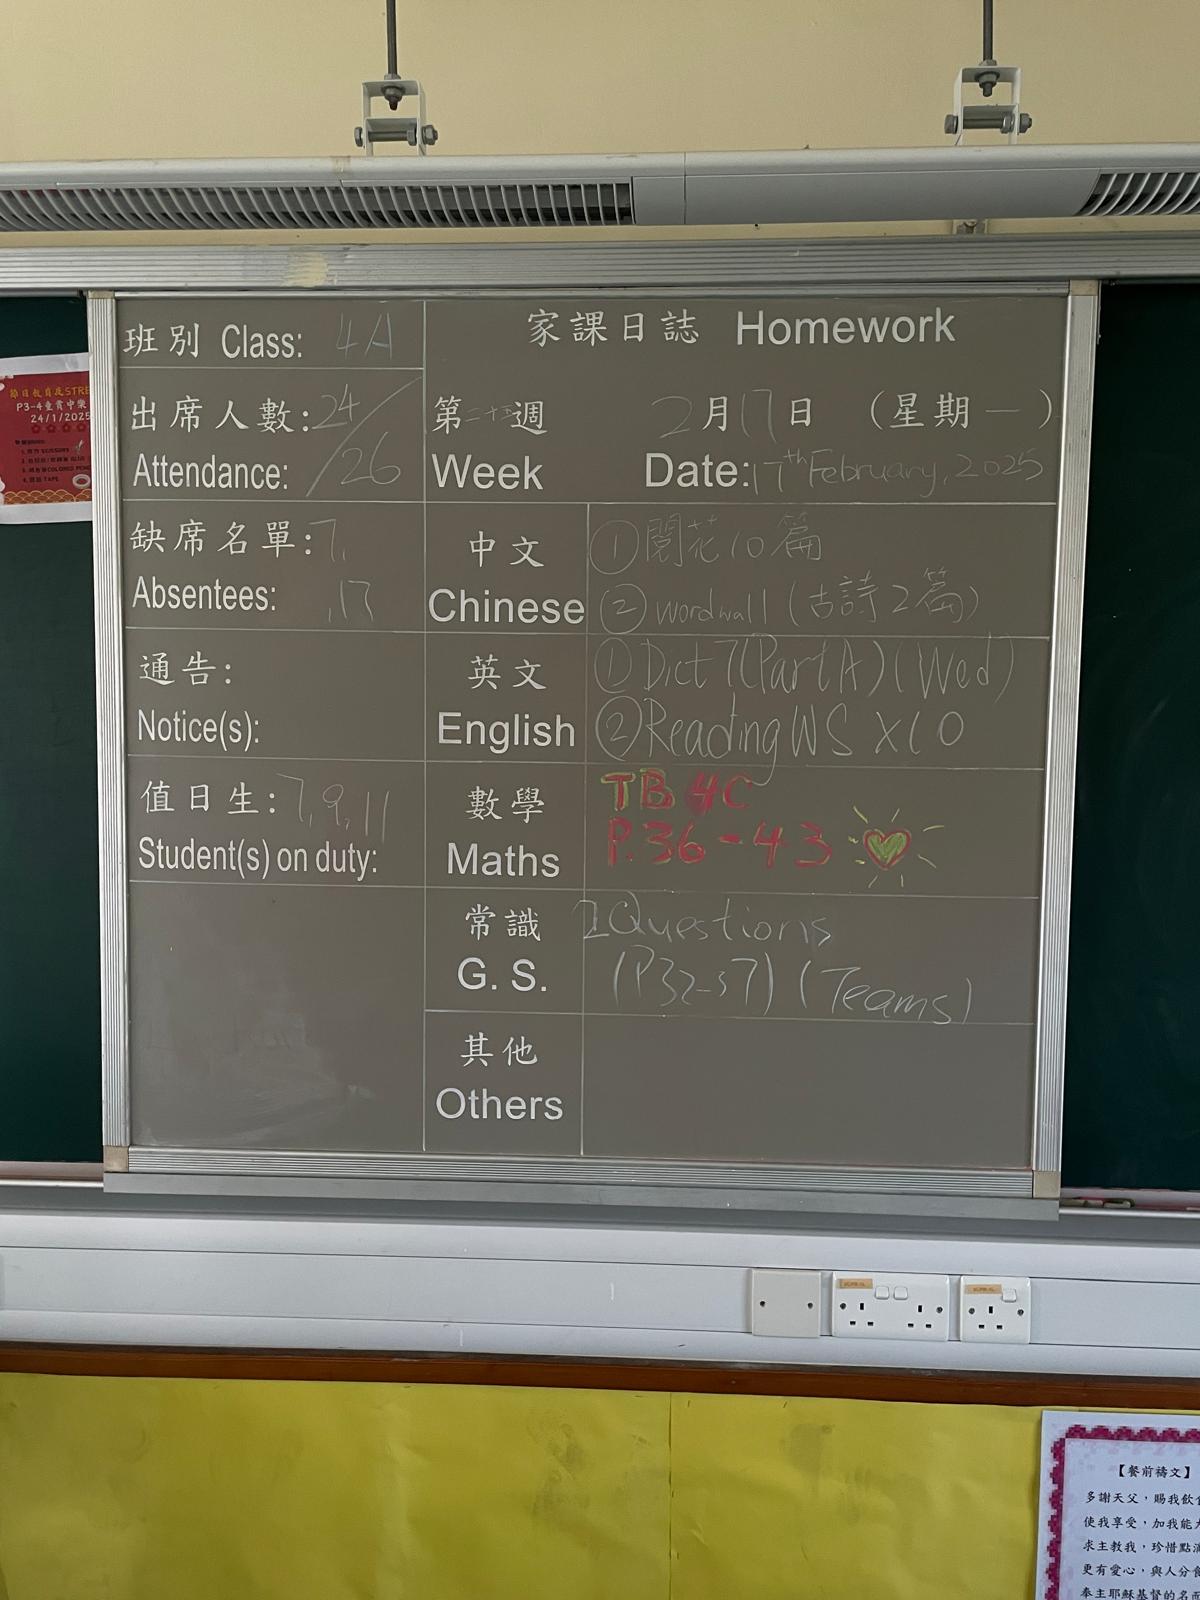 班別 Class: 4A
家課日誌 Homework
出席人數: 24/26
Attendance:
第二十五週
2月17日 (星期一)
Week
Date: 17th February, 2025
缺席名單: 7,
Absentees: ,17
中文
Chinese
① 閱花10篇
② wordwall (古詩2篇)
通告:
Notice(s):
英文
English
① Dict 7(Part A)(Wed)
② Reading WS X10
值日生: 7, 9, 11
Student(s) on duty:
數學
Maths
TB 4C
P.36-43
常識
G. S.
2 Questions
(P32-37) (Teams)
其他
Others
P3-4
24/1/2025
【餐前禱文】
多謝天父，賜我飲食
使我享受，加我能
求主教我，珍惜點滴
更有愛心，與人分食
奉主耶穌基督的名